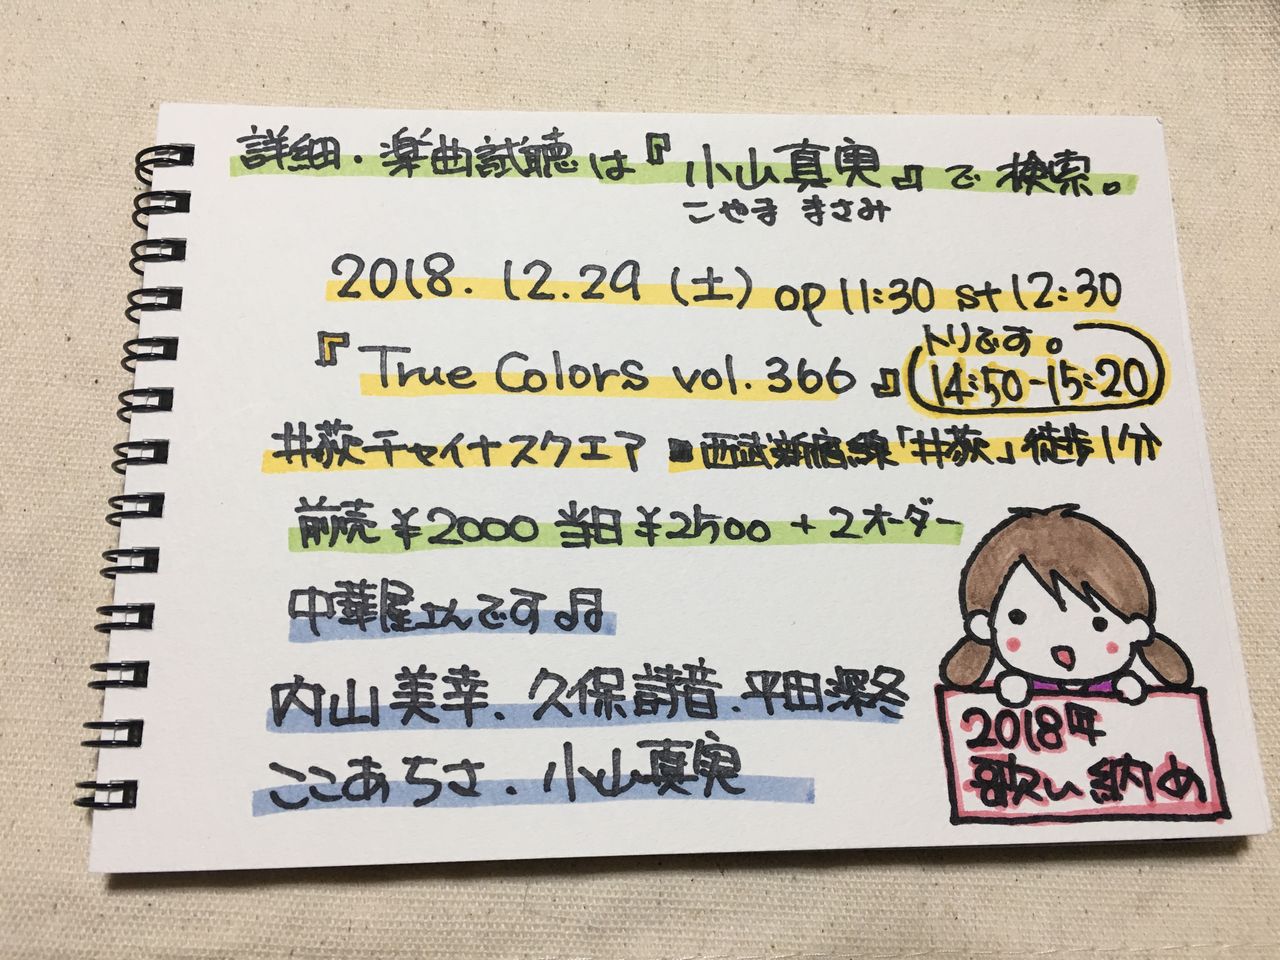 詳細・楽曲試聴は『小山真実』で検索。
こやま まさみ
2018. 12.29 (土) op 11:30 st 12:30
『True Colors vol. 366』
トリです。
14:50-15:20
井荻チャイナスクエア ■西武新宿線「井荻」徒歩1分
前売¥2000 当日¥2500 +2オーダー
中華屋さんです♫
内山美幸. 久保詩音. 平田深冬
ここあちさ. 小山真実
2018年
歌い納め